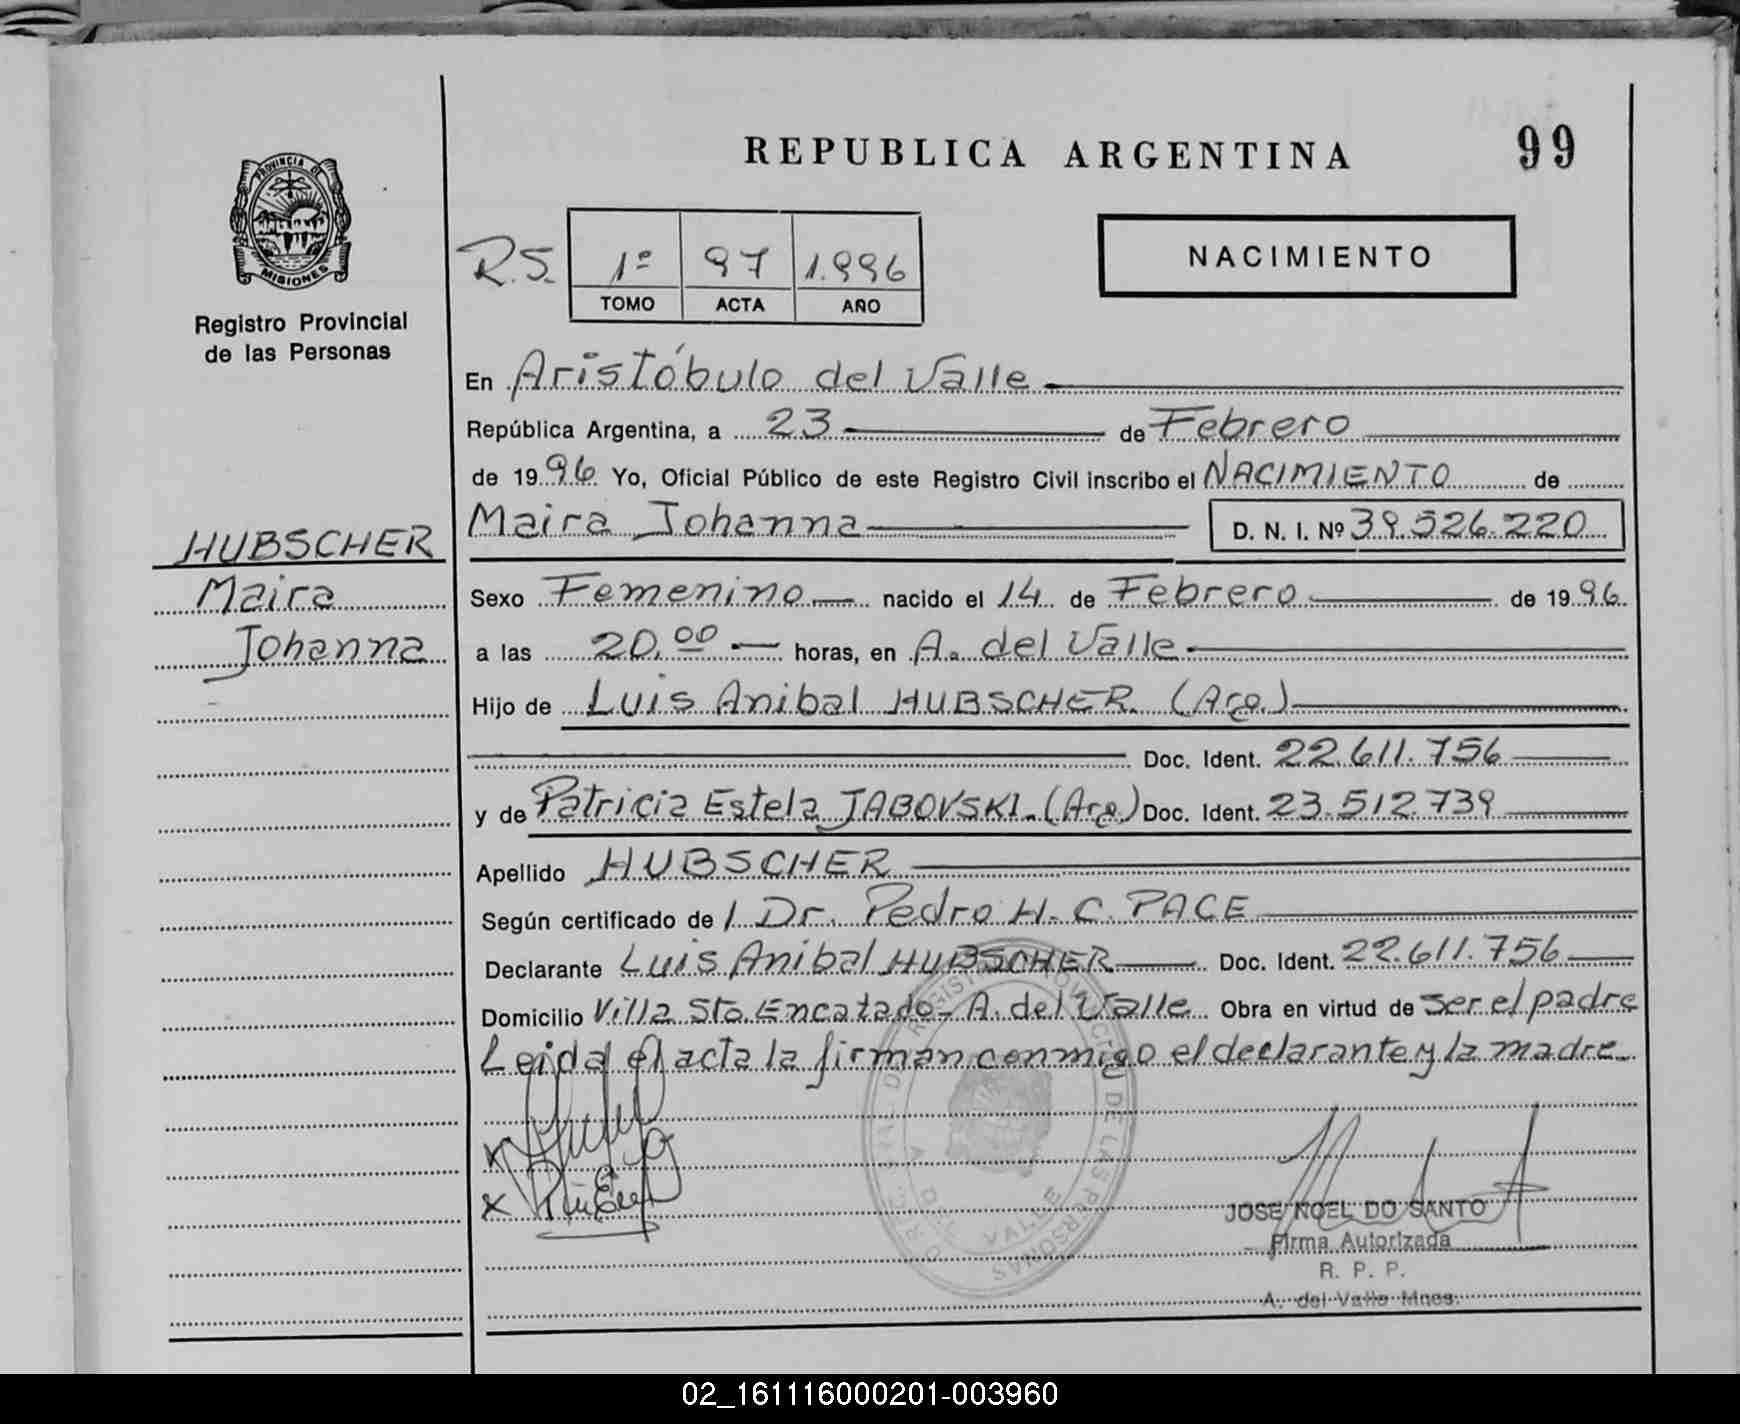 REPUBLICA ARGENTINA 99
PROVINCIA DE MISIONES
Registro Provincial
de las Personas
NACIMIENTO
R.S. 1º 97 1.996
TOMO ACTA AÑO
En Aristóbulo del Valle
República Argentina, a 23 de Febrero
de 1996 Yo, Oficial Público de este Registro Civil inscribo el NACIMIENTO de
Maira Johanna D. N. I. Nº 39.526.220
HUBSCHER
Maira
Johanna
Sexo Femenino nacido el 14 de Febrero de 1996
a las 20.00 horas, en A. del Valle
Hijo de Luis Anibal HUBSCHER (Arg.)
Doc. Ident. 22.611.756
y de Patricia Estela JABOVSKI (Arg) Doc. Ident. 23.512.739
Apellido HUBSCHER
Según certificado de / Dr. Pedro H. C. PACE
Declarante Luis Anibal HUBSCHER Doc. Ident. 22.611.756
Domicilio Villa Sto Encatado- A. del Valle Obra en virtud de ser el padre
Leida el acta la firman conmigo el declarante y la madre
JOSE NOEL DO SANTO
Firma Autorizada
R. P. P.
A. del Valle Mnes.
02_161116000201-003960